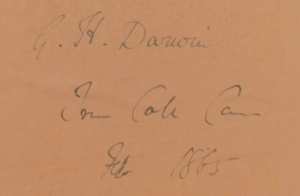 G. H. Darwin
Trin Coll Cam
Feb 1885